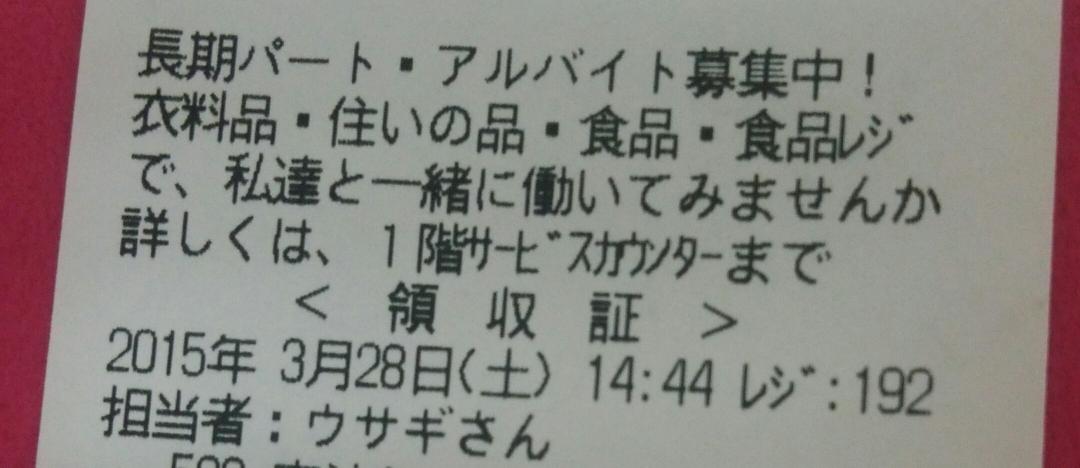 長期パート・アルバイト募集中!
衣料品・住いの品・食品・食品ﾚｼﾞ
で、私達と一緒に働いてみませんか
詳しくは、1階ｻｰﾋﾞｽｶｳﾝﾀｰまで
< 領 収 証 >
2015年 3月28日(土) 14:44 ﾚｼﾞ:192
担当者:ウサギさん